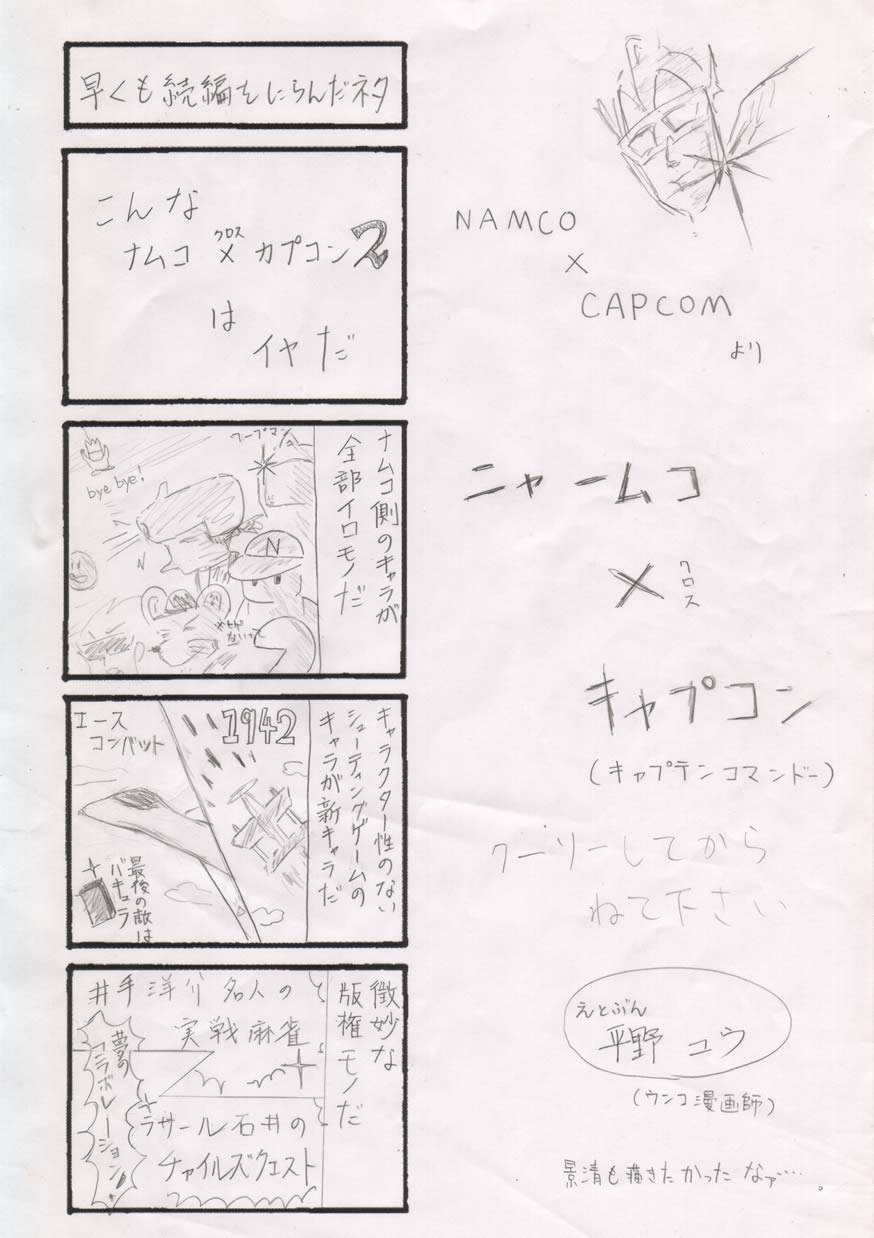 早くも続編をにらんだネタ
こんな
ナムコ×カプコン2
クロス
は
イヤだ
ナムコ側のキャラが
全部イロモノだ
ワープマン
bye bye!
N
N
キャラクター性のない
シューティングゲームの
キャラが新キャラだ
1942
エース
コンバット
最後の敵は
バキュラ
微妙な
版権モノだ
井手洋介名人の
実戦麻雀
夢の
コラボレーション!
ラサール石井の
チャイルズクエスト
NAMCO
×
CAPCOM
より
ニャームコ
×クロス
キャプコン
(キャプテンコマンドー)
クーソーしてから
ねて下さい
えとぶん
平野コウ
(ウンコ漫画師)
景清も描きたかったなァ…。